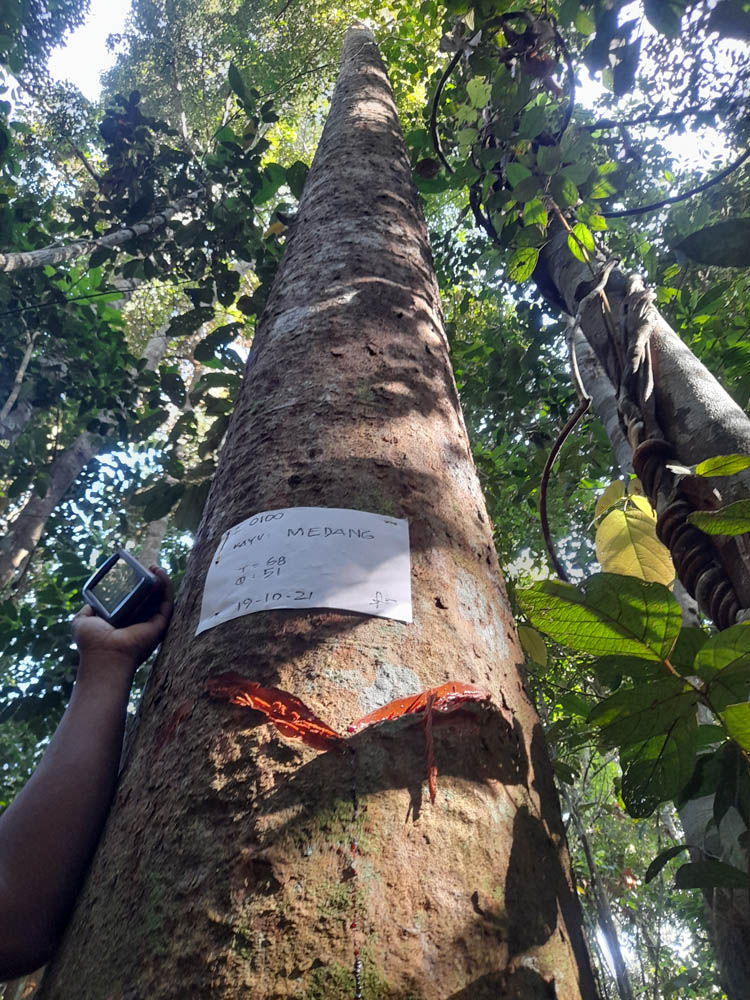 0100
KAYU: MEDANG
T = 68
Ø : 51
19-10-21